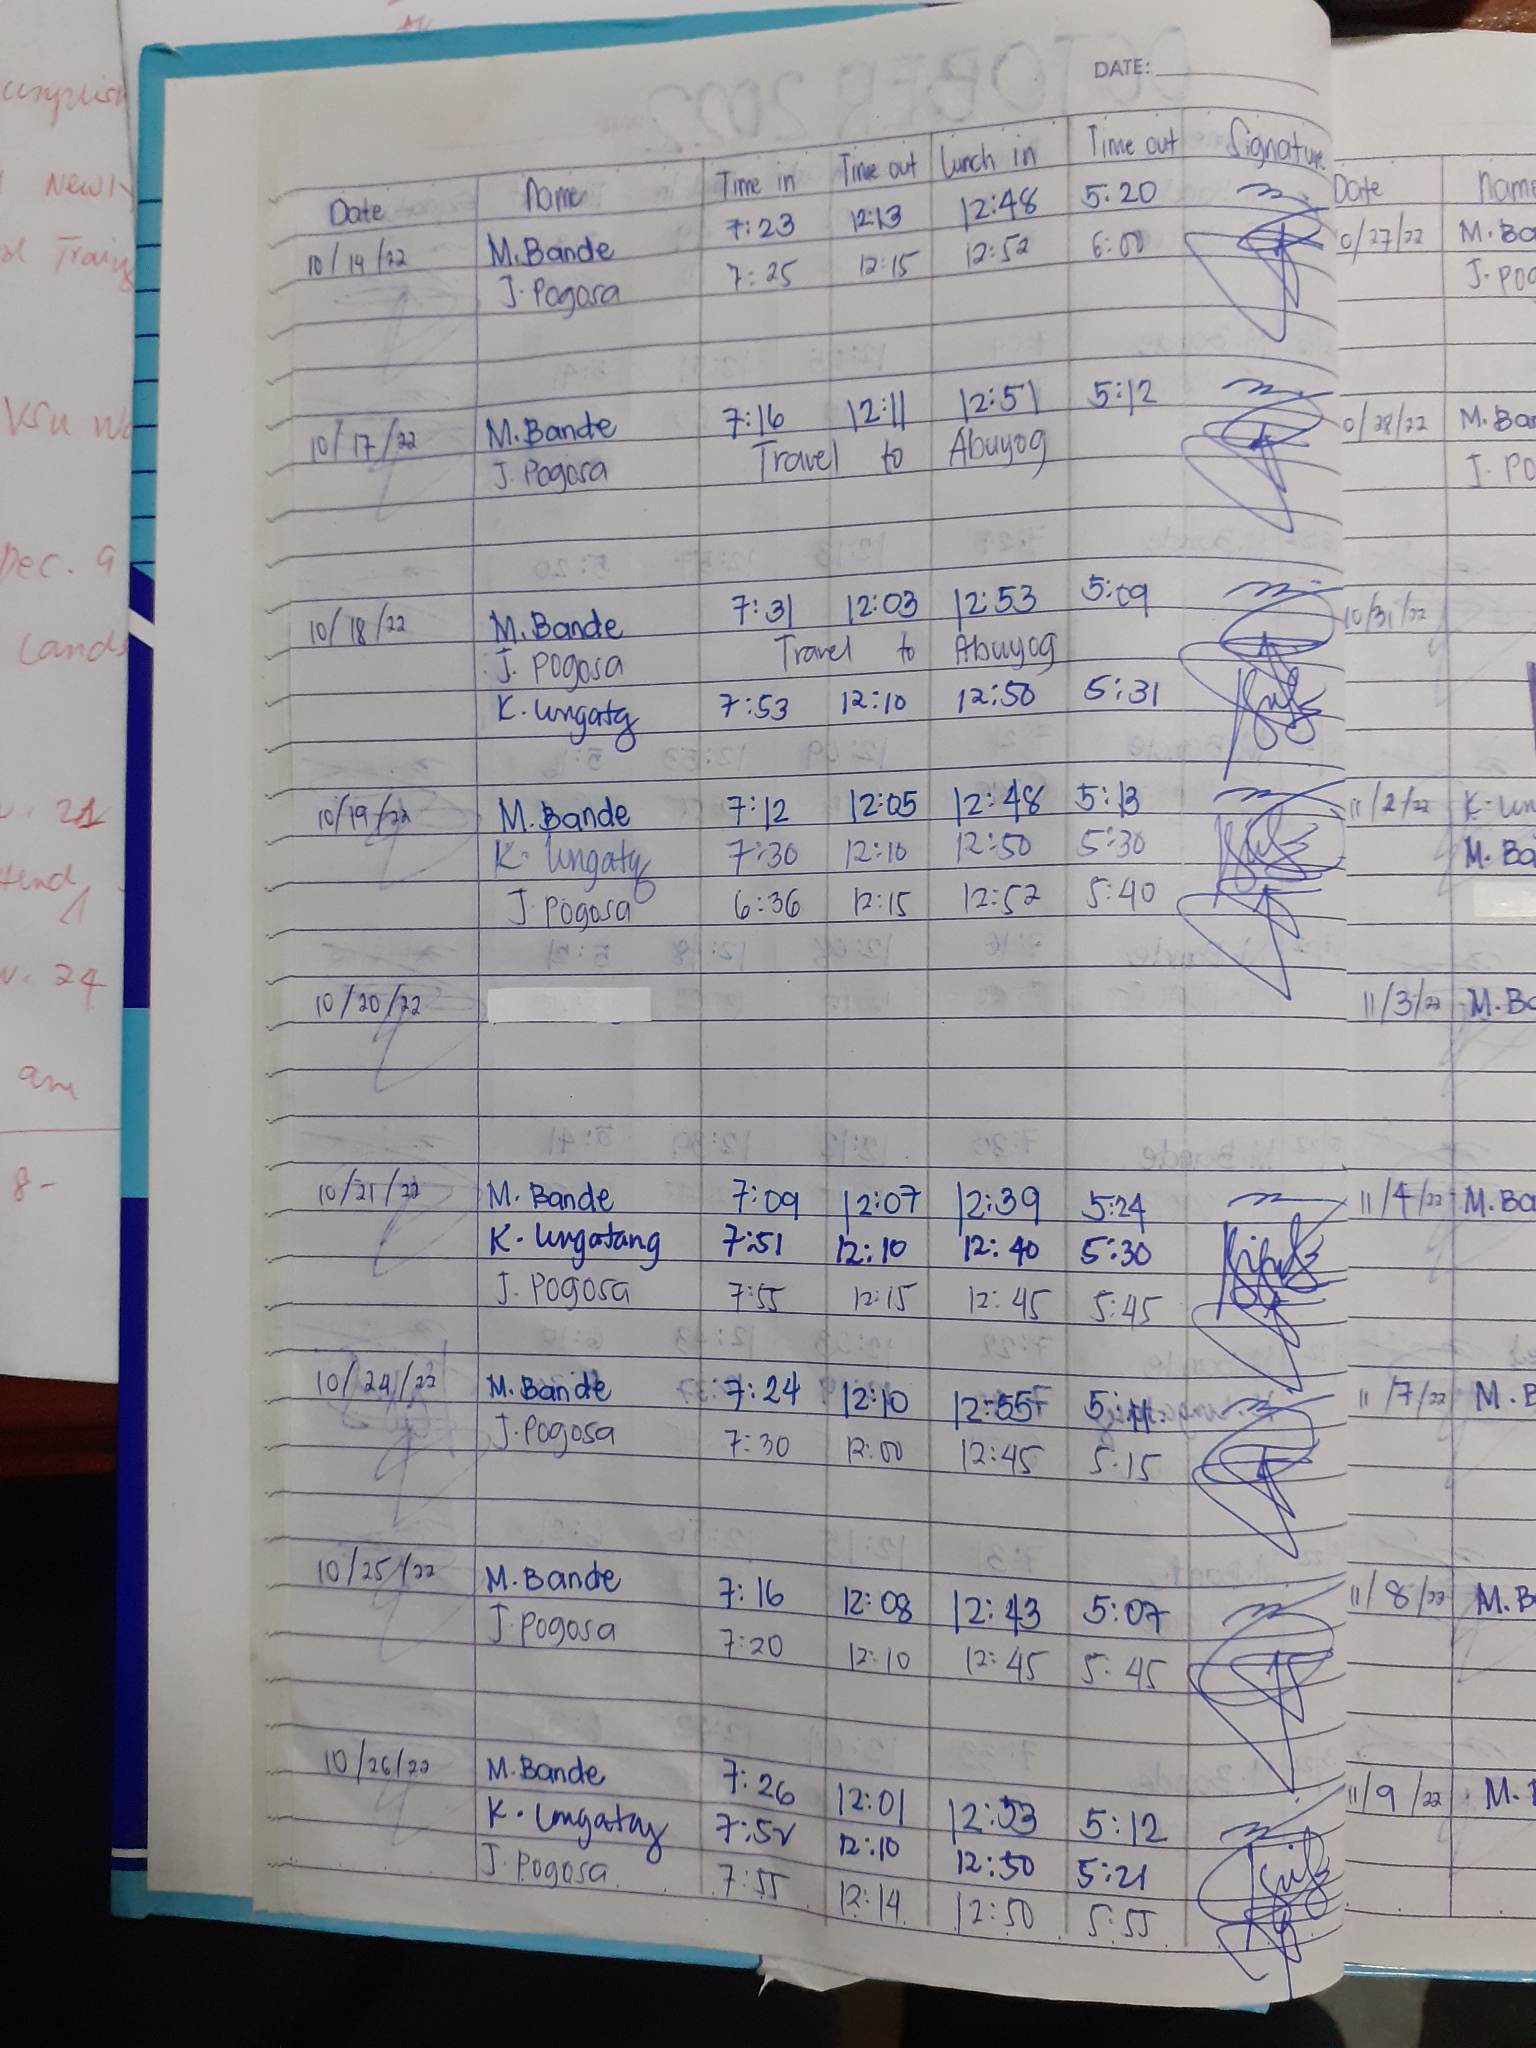 DATE:
Date Name Time in Time out Lunch in Time out Signature
10/14/22 M. Bande 7:23 12:13 12:48 5:20
J. Pogosa 7:25 12:15 12:52 6:00
10/17/22 M. Bande 7:16 12:11 12:51 5:12
J. Pogosa Travel to Abuyog
10/18/22 M. Bande 7:31 12:03 12:53 5:09
J. Pogosa Travel to Abuyog
K. Ungatg 7:53 12:10 12:50 5:31
10/19/22 M. Bande 7:12 12:05 12:48 5:13
K. Ungatg 7:30 12:10 12:50 5:30
J. Pogosa 6:36 12:15 12:52 5:40
10/20/22
10/21/22 M. Bande 7:09 12:07 12:39 5:24
K. Ungatang 7:51 12:10 12:40 5:30
J. Pogosa 7:55 12:15 12:45 5:45
10/24/22 M. Bande 7:24 12:10 12:55 5:11
J. Pogosa 7:30 12:00 12:45 5:15
10/25/22 M. Bande 7:16 12:08 12:43 5:07
J. Pogosa 7:20 12:10 12:45 5:45
10/26/22 M. Bande 7:26 12:01 12:53 5:12
K. Ungatag 7:52 12:10 12:50 5:21
J. Pogosa 7:55 12:14 12:50 5:55
Date Name
0/27/22 M. Ba
J. Pog
0/28/22 M. Ba
J. Po
10/31/22
11/2/22 K. Un
M. Ba
11/3/22 M. Ba
11/4/22 M. Ba
11/7/22 M. B
11/8/22 M. B
11/9/22 M.
Dec. 9
24
am
8-